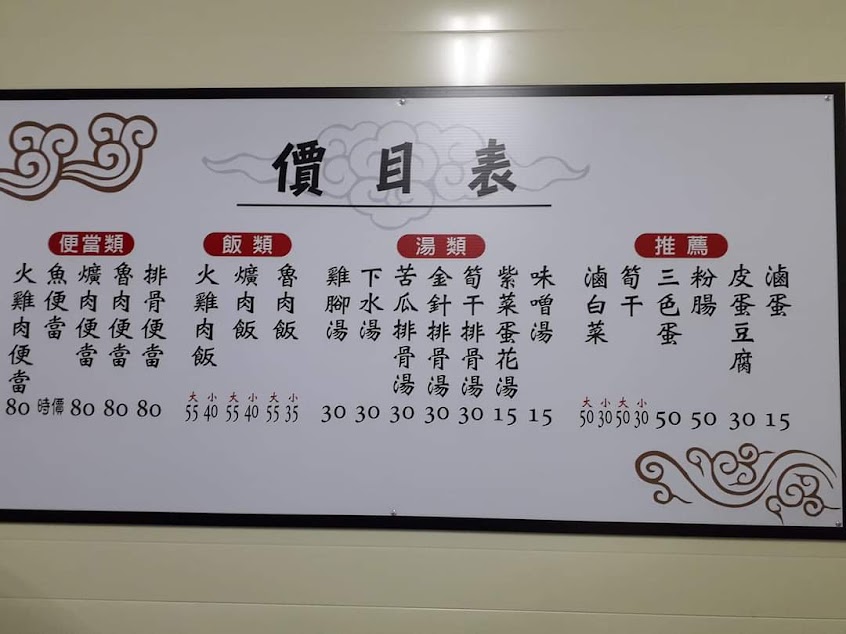 價目表
推薦
滷蛋 15
皮蛋豆腐 30
粉腸 50
三色蛋 50
筍干 大50 小30
滷白菜 大50 小30
湯類
味噌湯 15
紫菜蛋花湯 15
筍干排骨湯 30
金針排骨湯 30
苦瓜排骨湯 30
下水湯 30
雞腳湯 30
飯類
魯肉飯 大55 小35
爌肉飯 大55 小40
火雞肉飯 大55 小40
便當類
排骨便當 80
魯肉便當 80
爌肉便當 80
魚便當 時價
火雞肉便當 80